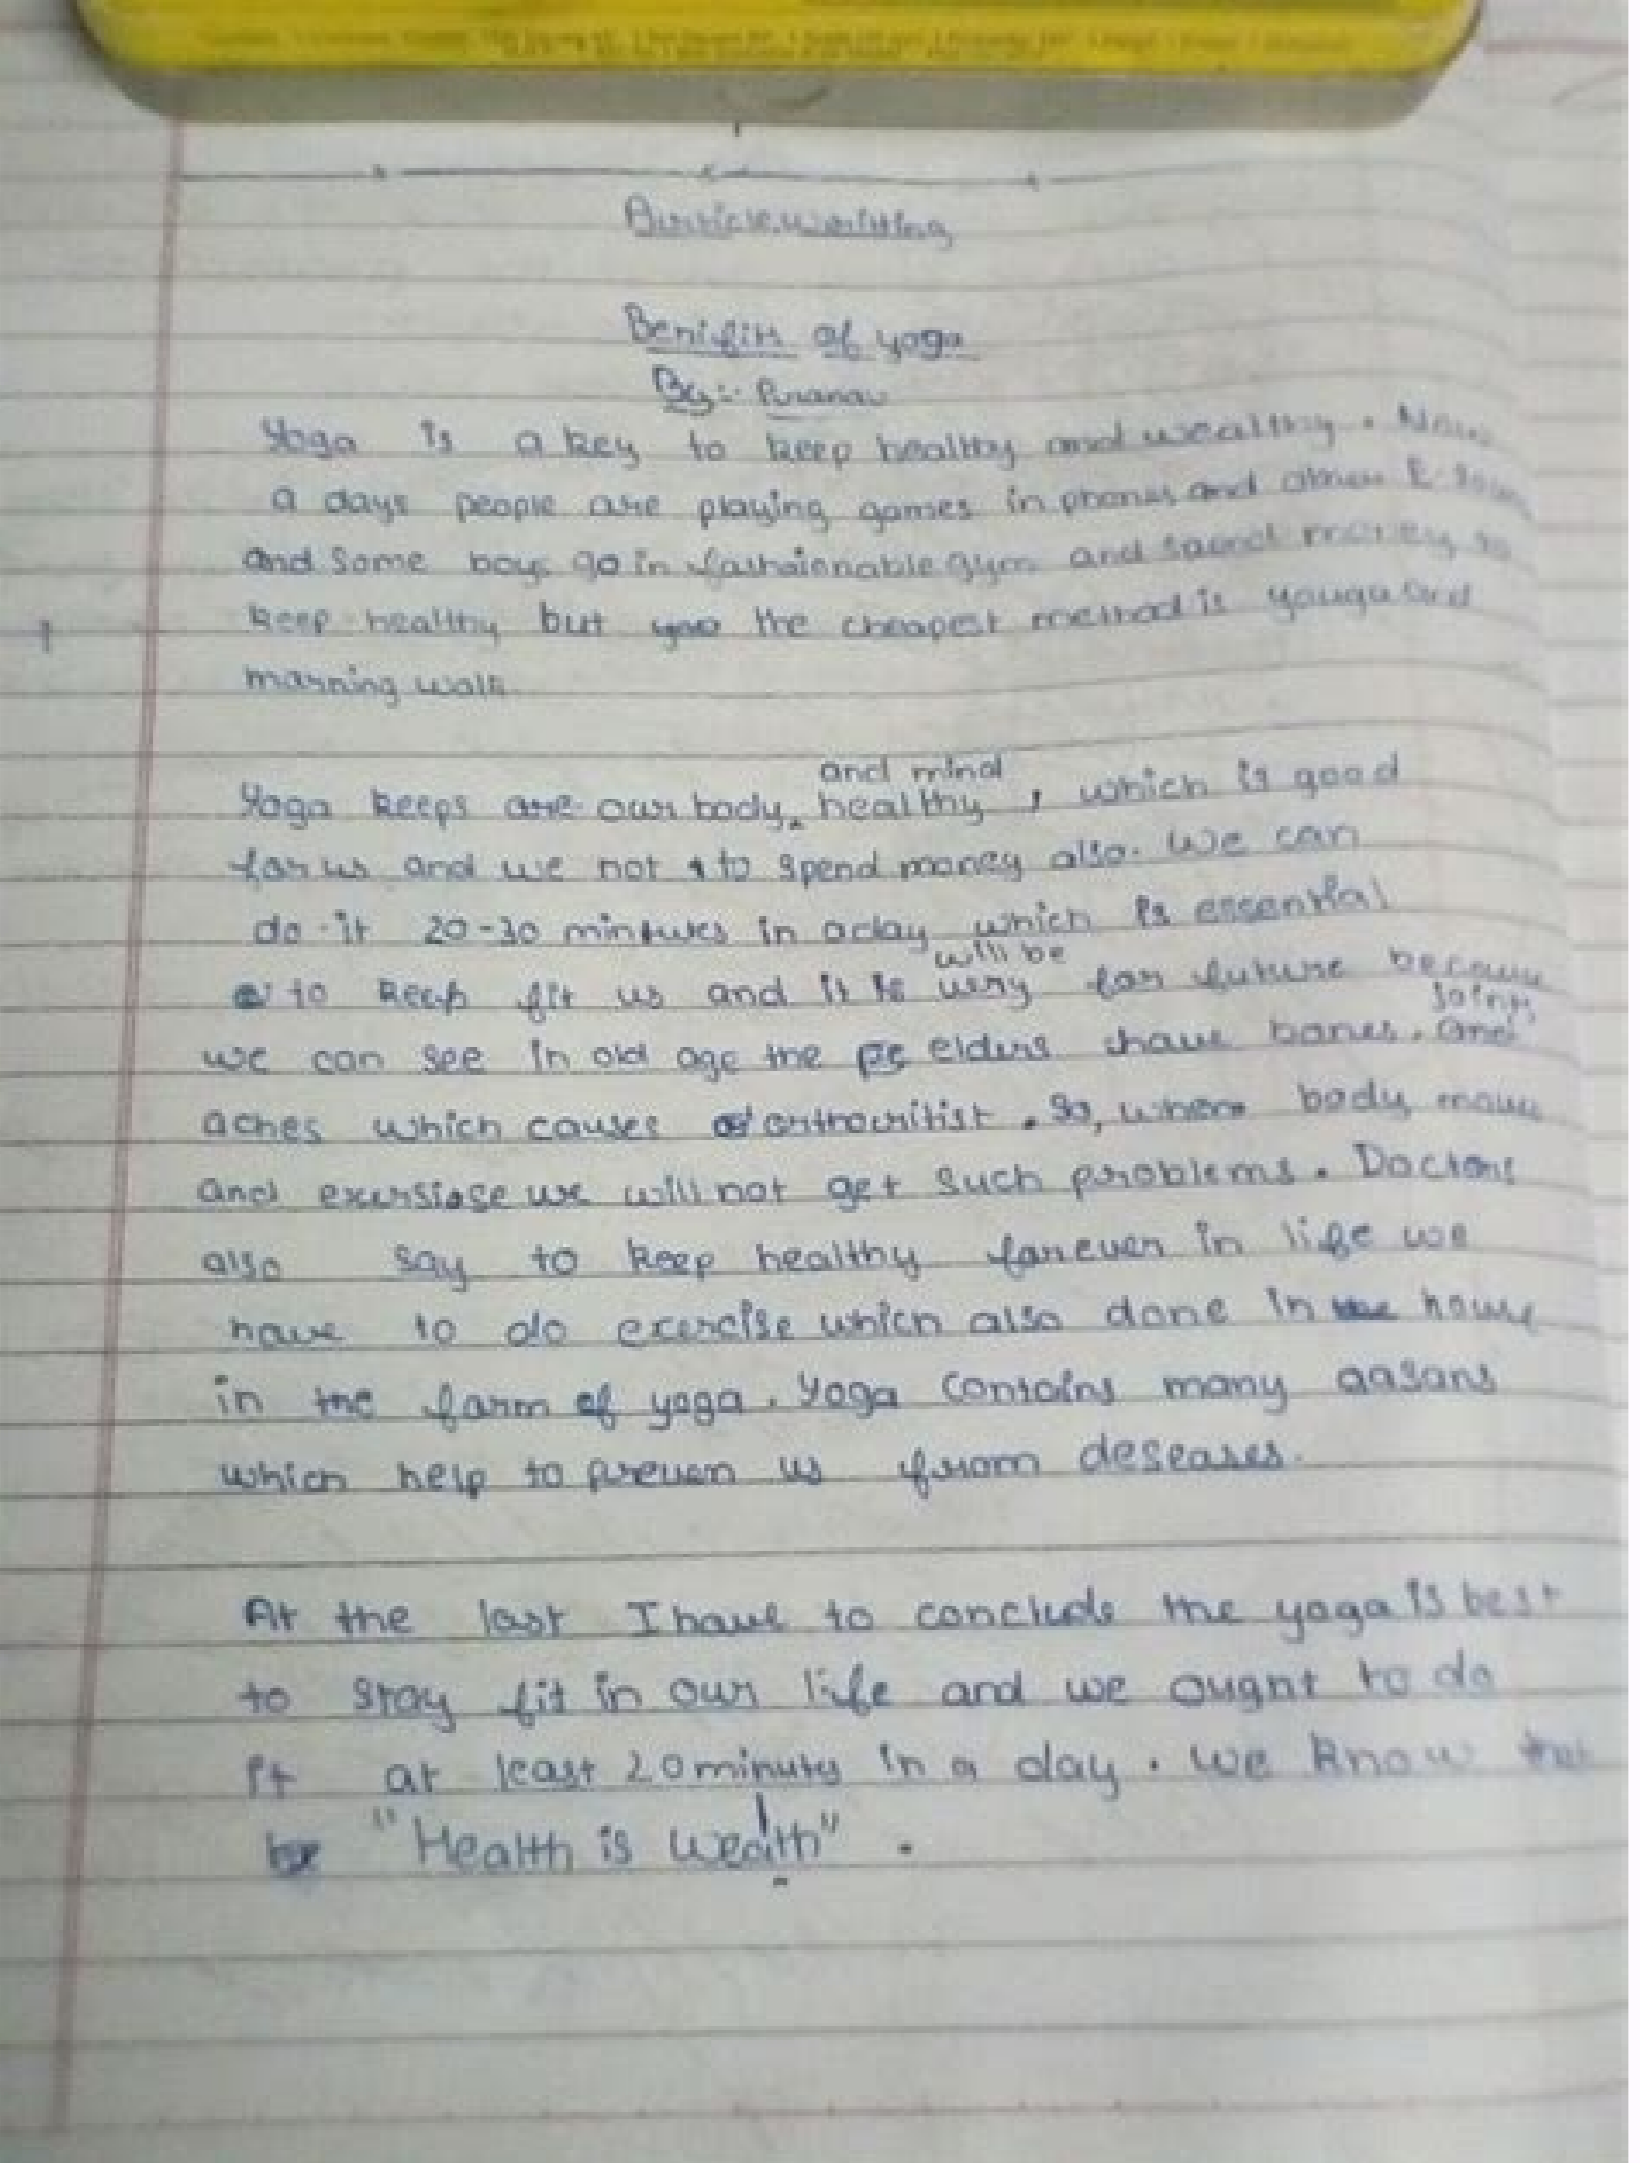 Article writting
Benifits of yoga
By:- Pranav
Yoga is a key to keep healthy and wealthy. Now
a days people are playing games in phones and other E-
and Some boys go in fashaionable gym and spend money to
keep healthy but the cheapest method is youga and
morning walk
and mind
Yoga keeps are our body healthy, which is good
for us and we not to spend money also. We can
do it 20-30 mintutes in a day which is essential
will be
to keep fit us and it is very for future because
joints
we can see in old age the elders have bones. and
aches which causes orthoritist. So, when body move
and exersiase we will not get such problems. Doctors
also say to keep healthy forever in life we
have to do exercise which also done in house
in the form of yoga. Yoga contains many aasans
which help to preven us from deseases.
At the last I have to conclude the yoga is best
to stay fit in our life and we ought to do
it at least 20 minuts in a day. We know that
"Health is wealth".